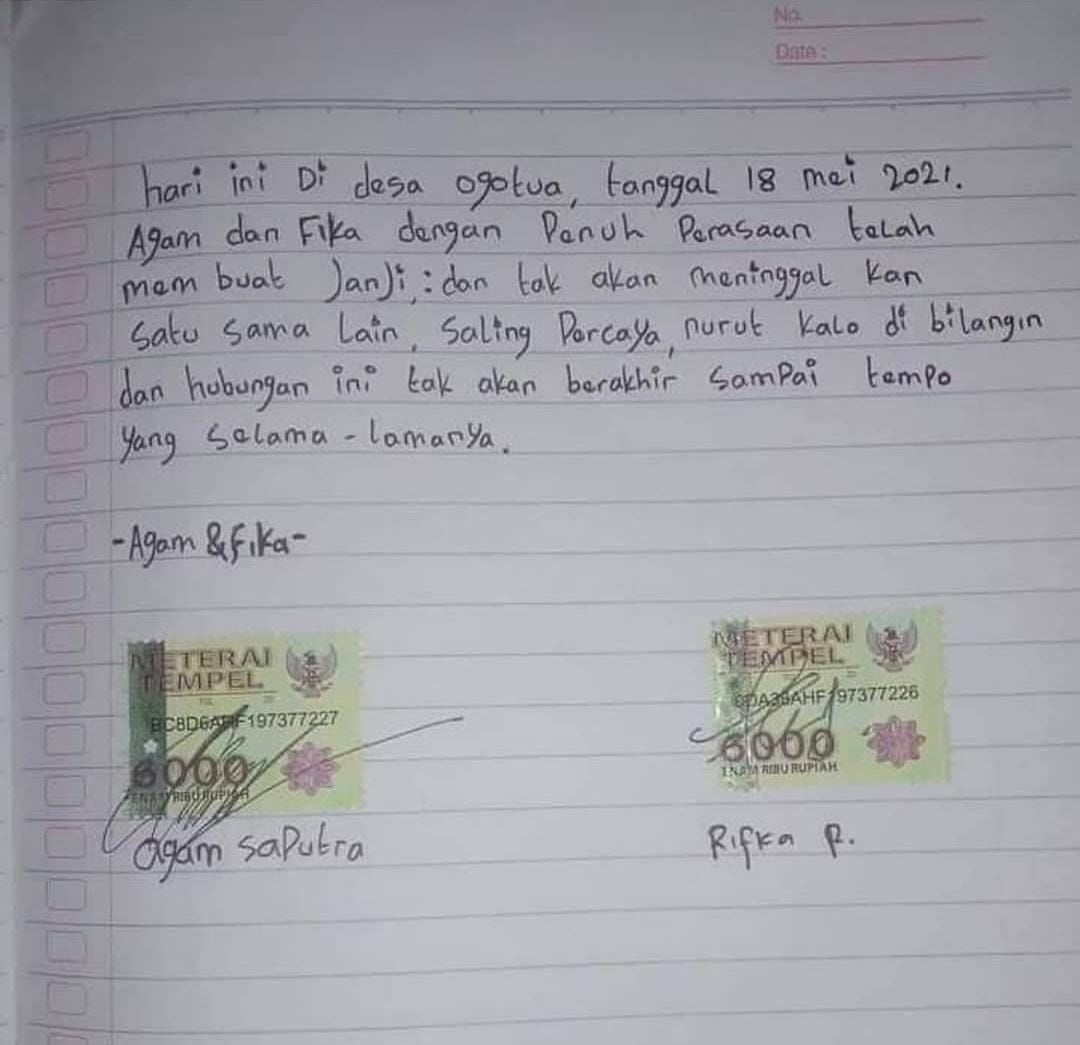 No.
Date :
hari ini Di desa ogotua, tanggal 18 mei 2021.
Agam dan Fika dengan Penuh Perasaan telah
mem buat Janji,: dan tak akan meninggal kan
satu sama Lain, Saling Percaya, nurut kalo di bilangin
dan hubungan ini tak akan berakhir samPai tempo
yang selama-lamanya.
-Agam & fika-
METERAI
TEMPEL
197377227
6000
ENAM RIBU RUPIAH
agam saPutra
METERAI
TEMPEL
197377226
6000
ENAM RIBU RUPIAH
Rifka P.